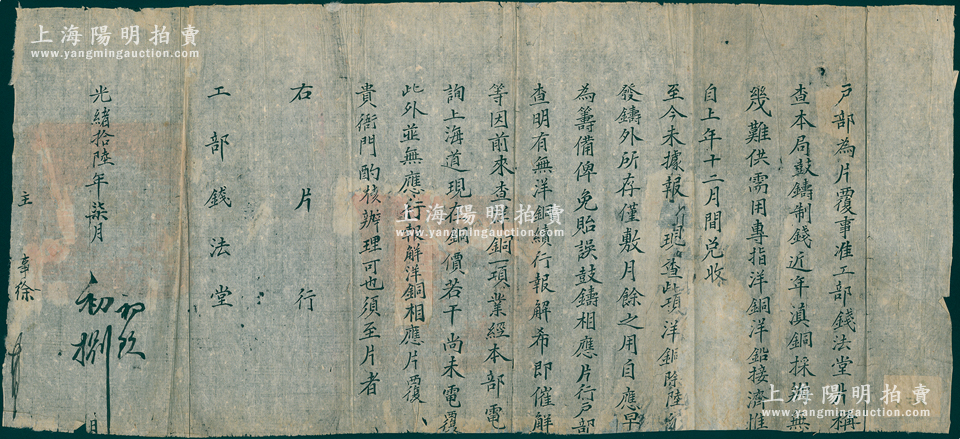 戶部為片覆事准工部錢法堂片稱
查本局鼓鑄制錢近年滇銅採辦無
幾難供需用專指洋銅洋鉛接濟惟
自上年十二月間兌收
至今未據報解現查此項洋銅除陸續
發鑄外所存僅敷月餘之用自應早
為籌備俾免貽誤鼓鑄相應片行戶部
查明有無洋銅續行報解希即催解
等因前來查洋銅一項業經本部電
詢上海道現在銅價若干尚未電覆
此外並無應行報解洋銅相應片覆
貴衙門酌核辦理可也須至片者
右片行
工部錢法堂
光緒拾陸年柒月
初捌
日
主事徐
上海陽明拍賣
www.yangmingauction.com
上海陽明拍賣
www.yangmingauction.com
上海陽明拍賣
www.yangmingauction.com